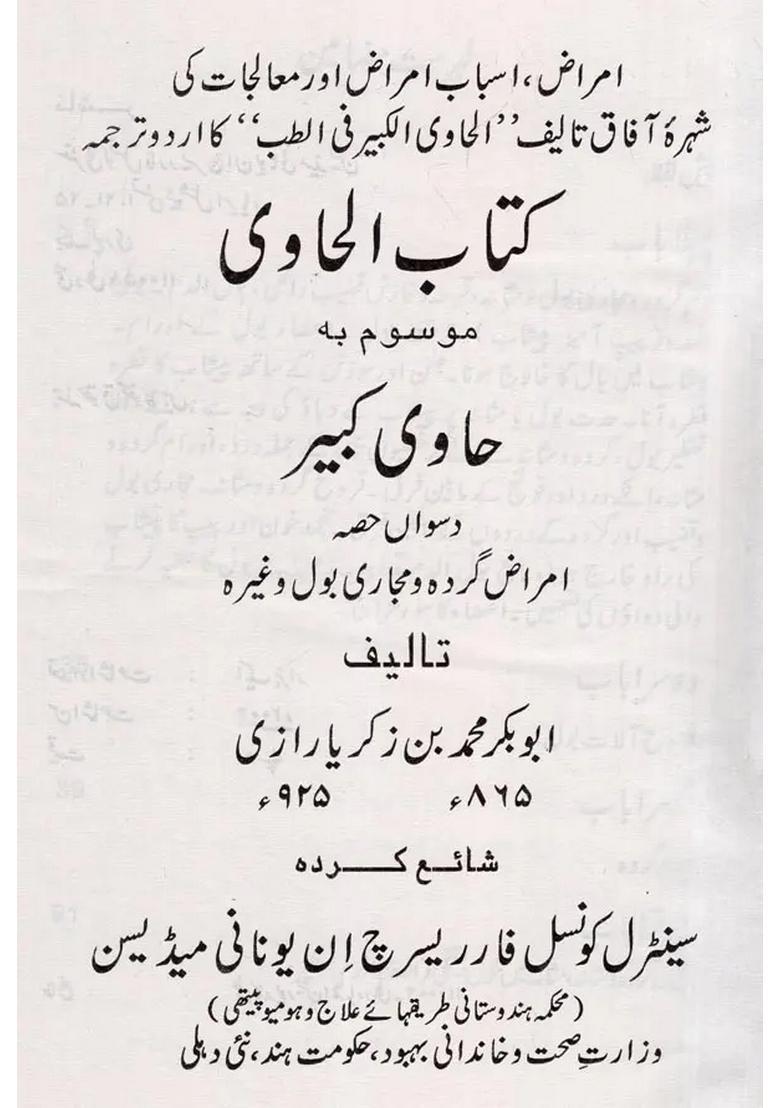 امراض، اسباب امراض اور معالجات کی
شہرۂ آفاق تالیف ’’الحاوی الکبیر فی الطب‘‘ کا اردو ترجمہ
کتاب الحاوی
موسوم بہ
حاوی کبیر
دسواں حصہ
امراض گردہ و مجاری بول وغیرہ
تالیف
ابوبکر محمد بن زکریا رازی
۸۶۵ء ۹۲۵ء
شائع کردہ
سینٹرل کونسل فار ریسرچ اِن یونانی میڈیسن
(محکمہ ہندوستانی طریقہائے علاج و ہومیوپیتھی)
وزارتِ صحت و خاندانی بہبود، حکومت ہند، نئی دہلی